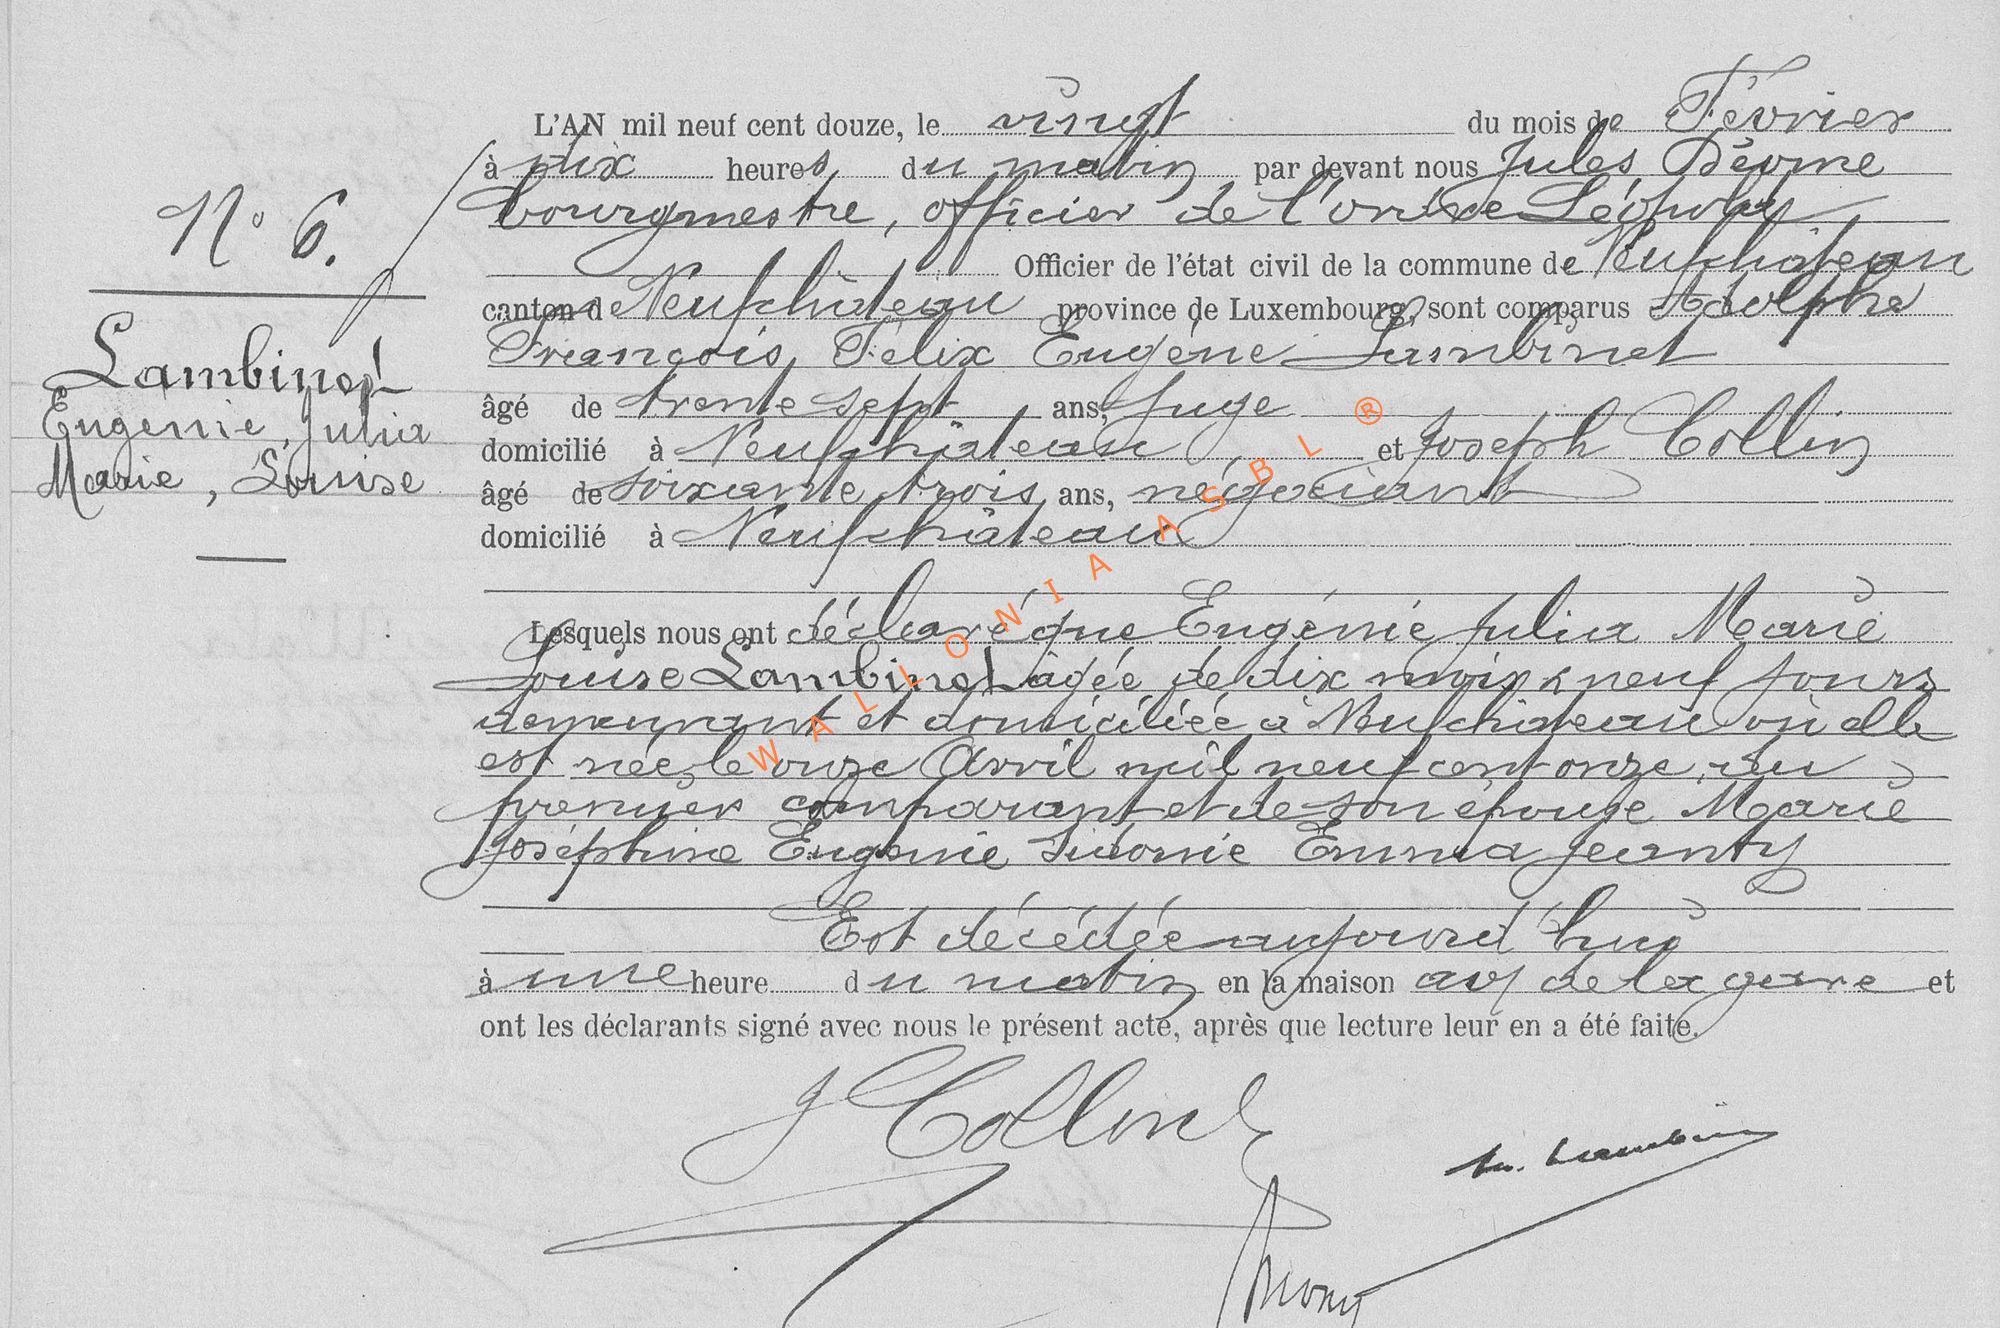 N° 6.
Lambinet
Eugénie, Julia
Marie, Louise
L'AN mil neuf cent douze, le vingt du mois de Février
à dix heures du matin par devant nous Jules
bourgmestre, officier de l'ordre Léopold
Officier de l'état civil de la commune de Neufchâteau
canton de Neufchâteau province de Luxembourg, sont comparus Adolphe
François, Félix Eugène Lambinet
âgé de trente sept ans, juge
domicilié à Neufchâteau et Joseph Collin
âgé de soixante trois ans, négociant
domicilié à Neufchâteau
Lesquels nous ont déclaré que Eugénie Julia Marie
Louise Lambinet âgée de dix mois & neuf jours
demeurant et domiciliée à Neufchâteau où elle
est née, le onze Avril mil neuf cent onze, du
premier comparant et de son épouse Marie
Joséphine Eugénie Sidonie Emma Jeanty
Est décédée aujourd'hui
à une heure du matin en la maison av. de la gare et
ont les déclarants signé avec nous le présent acte, après que lecture leur en a été faite.
J Collin
Lambinet
WALLONIA ASBL ®